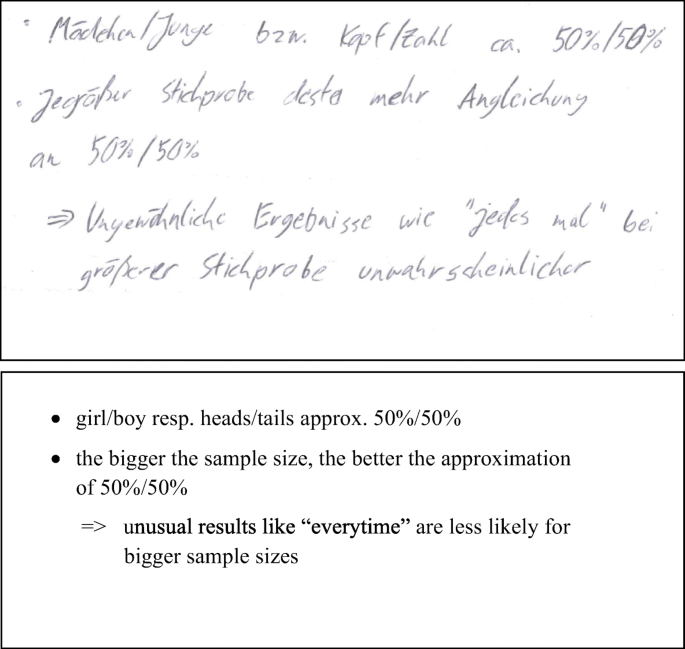 • Mädchen/Junge bzw. Kopf/Zahl ca. 50%/50%
• Jegrößer Stichprobe desto mehr Angleichung
an 50%/50%
=> Ungewöhnliche Ergebnisse wie "jedes mal" bei
größerer Stichprobe unwahrscheinlicher
• girl/boy resp. heads/tails approx. 50%/50%
• the bigger the sample size, the better the approximation
of 50%/50%
=> unusual results like “everytime” are less likely for
bigger sample sizes